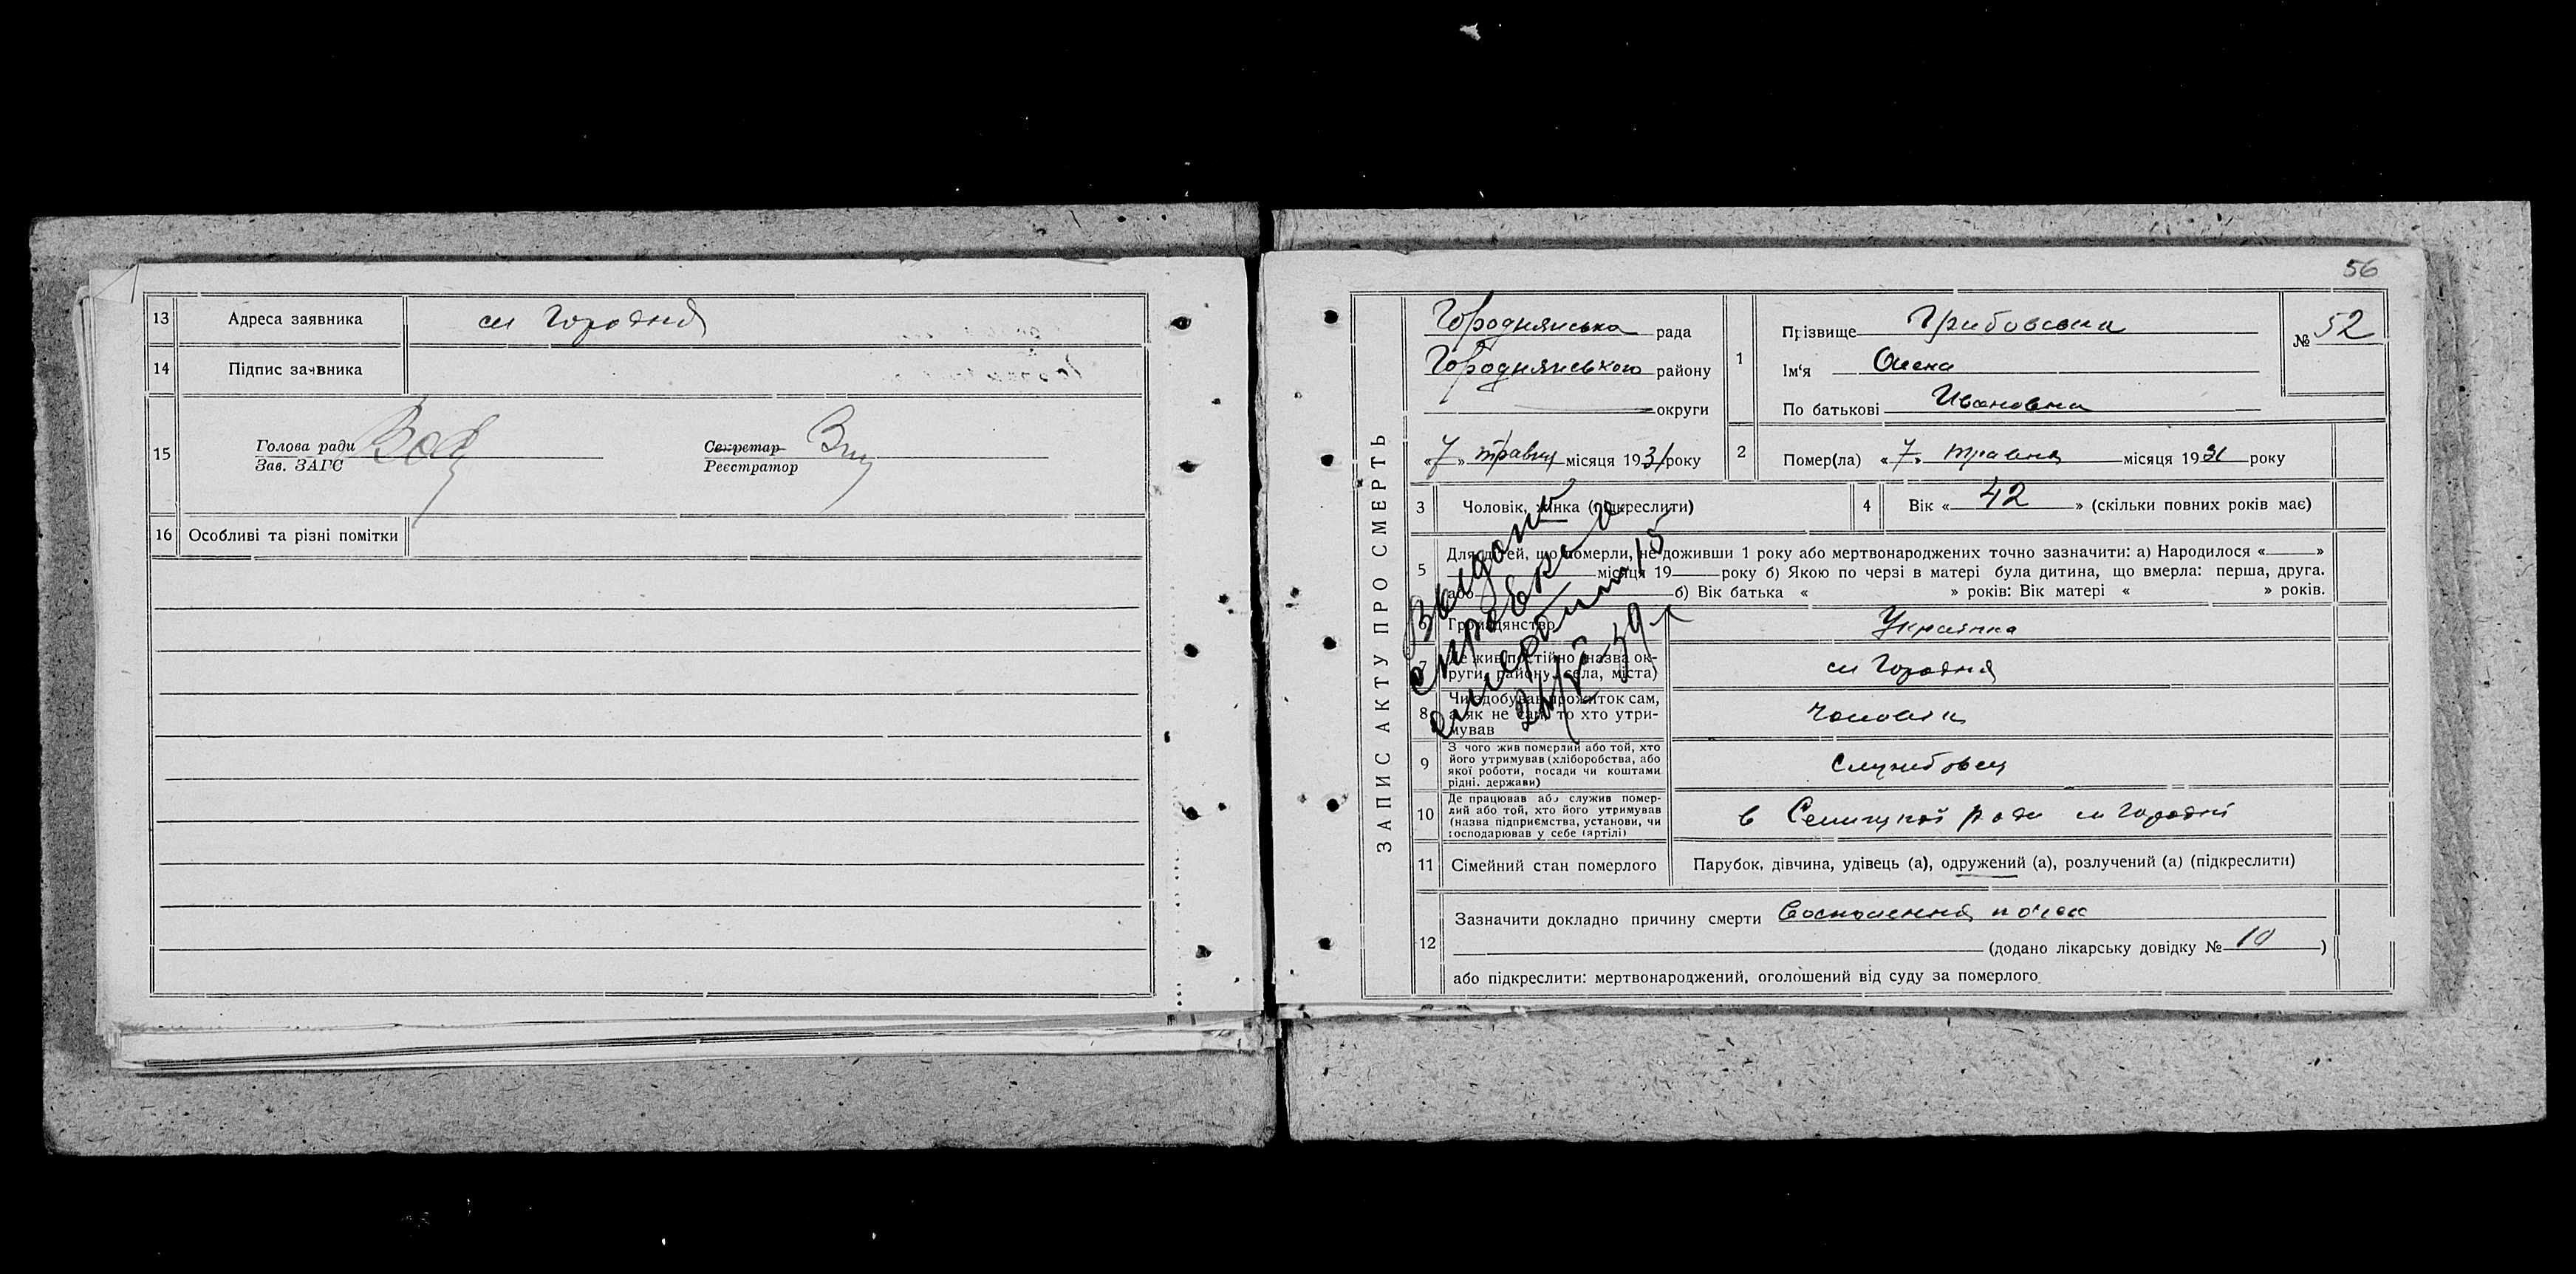 13 Адреса заявника см Городня
14 Підпис заявника
15 Голова ради
Зав. ЗАГС
Секретар
Реєстратор
16 Особливі та різні помітки
56
ЗАПИС АКТУ ПРО СМЕРТЬ
Городнянська рада
Городнянського району
округи
«7» травня місяця 1931 року
1 Прізвище Грибовська
Ім'я Олена
По батькові Ивановна
№ 52
2 Помер(ла) «7» травня місяця 1931 року
3 Чоловік, жінка (підкреслити)
4 Вік « 42 » (скільки повних років має)
5 Для дітей, що померли, не доживши 1 року або мертвонароджених точно зазначити: а) Народилося « »
місяця 19 року б) Якою по черзі в матері була дитина, що вмерла: перша, друга.
або б) Вік батька « » років: Вік матері « » років.
6 Громадянство Українка
7 Де жив постійно (назва ок-
руги, району, села, міста) см Городня
8 Чи здобував прожиток сам,
а як не сам, то хто утри-
мував Чоловік
9 З чого жив померлий або той, хто
його утримував (хліборобства, або
якої роботи, посади чи коштами
рідні. держави) Службовец
10 Де працював або служив помер-
лий або той, хто його утримував
(назва підприємства, установи, чи
господарював у себе (артілі) в Селищній раді см Городні
11 Сімейний стан померлого Парубок, дівчина, удівець (а), одружений (а), розлучений (а) (підкреслити)
12 Зазначити докладно причину смерти Воспалення почек
(додано лікарську довідку № 10 )
або підкреслити: мертвонароджений, оголошений від суду за померлого
Выдана
справка о
смерти